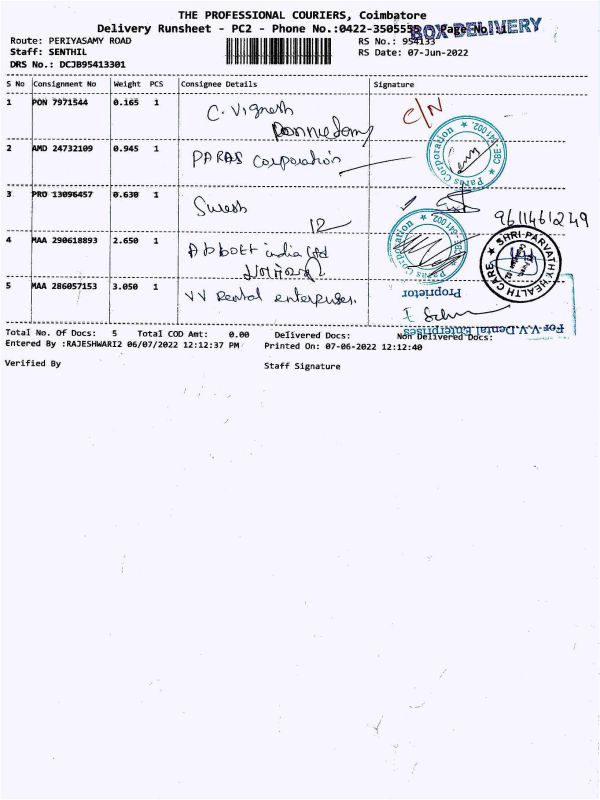 THE PROFESSIONAL COURIERS, Coimbatore
Delivery Runsheet - PC2 - Phone No.:0422-3505555 Page No.:1
BOX DELIVERY
Route: PERIYASAMY ROAD
RS No.: 954133
Staff: SENTHIL
RS Date: 07-Jun-2022
DRS No.: DCJB95413301
S No Consignment No Weight PCS Consignee Details Signature
1 PON 7971544 0.165 1 C. Vignesh C/N
2 AMD 24732109 0.945 1 PARAS Corporation
Paras Corporation ★ 641 002. CBE ★
3 PRO 13096457 0.630 1 Suresh
12
9611461249
4 MAA 290618893 2.650 1 Abbott india ltd
Paras Corporation ★ 641 002. CBE
SHRI-PARVATHY HEALTH CARE ★
5 MAA 286057153 3.050 1 VV Dental enterprises.
Proprietor
For V.V.Dental Enterprises
Total No. Of Docs: 5 Total COD Amt: 0.00 Delivered Docs: Non Delivered Docs:
Entered By :RAJESHWARI2 06/07/2022 12:12:37 PM Printed On: 07-06-2022 12:12:40
Verified By Staff Signature